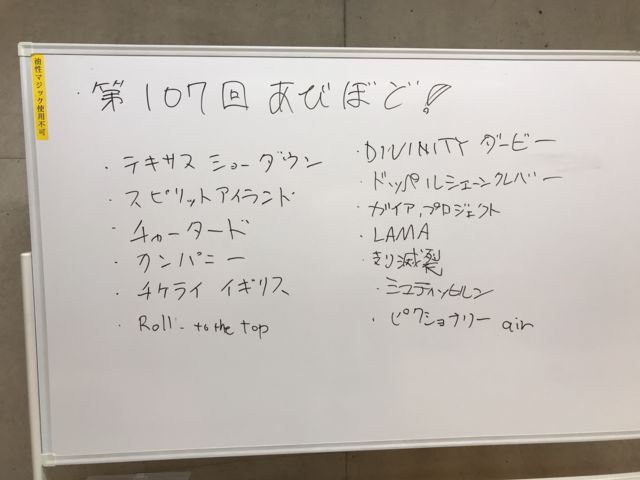 油性マジック使用不可
・第107回 あびぼど!
・テキサス ショーダウン
・スピリットアイランド
・チャータード
・カンパニー
・チケライ イギリス
・Roll-to the top
・DIVINITY ダービー
・ドッペルシェーンクレバー
・ガイア,プロジェクト
・LAMA
・滅裂
・ミュティンヒルン
・ピクショナリー air